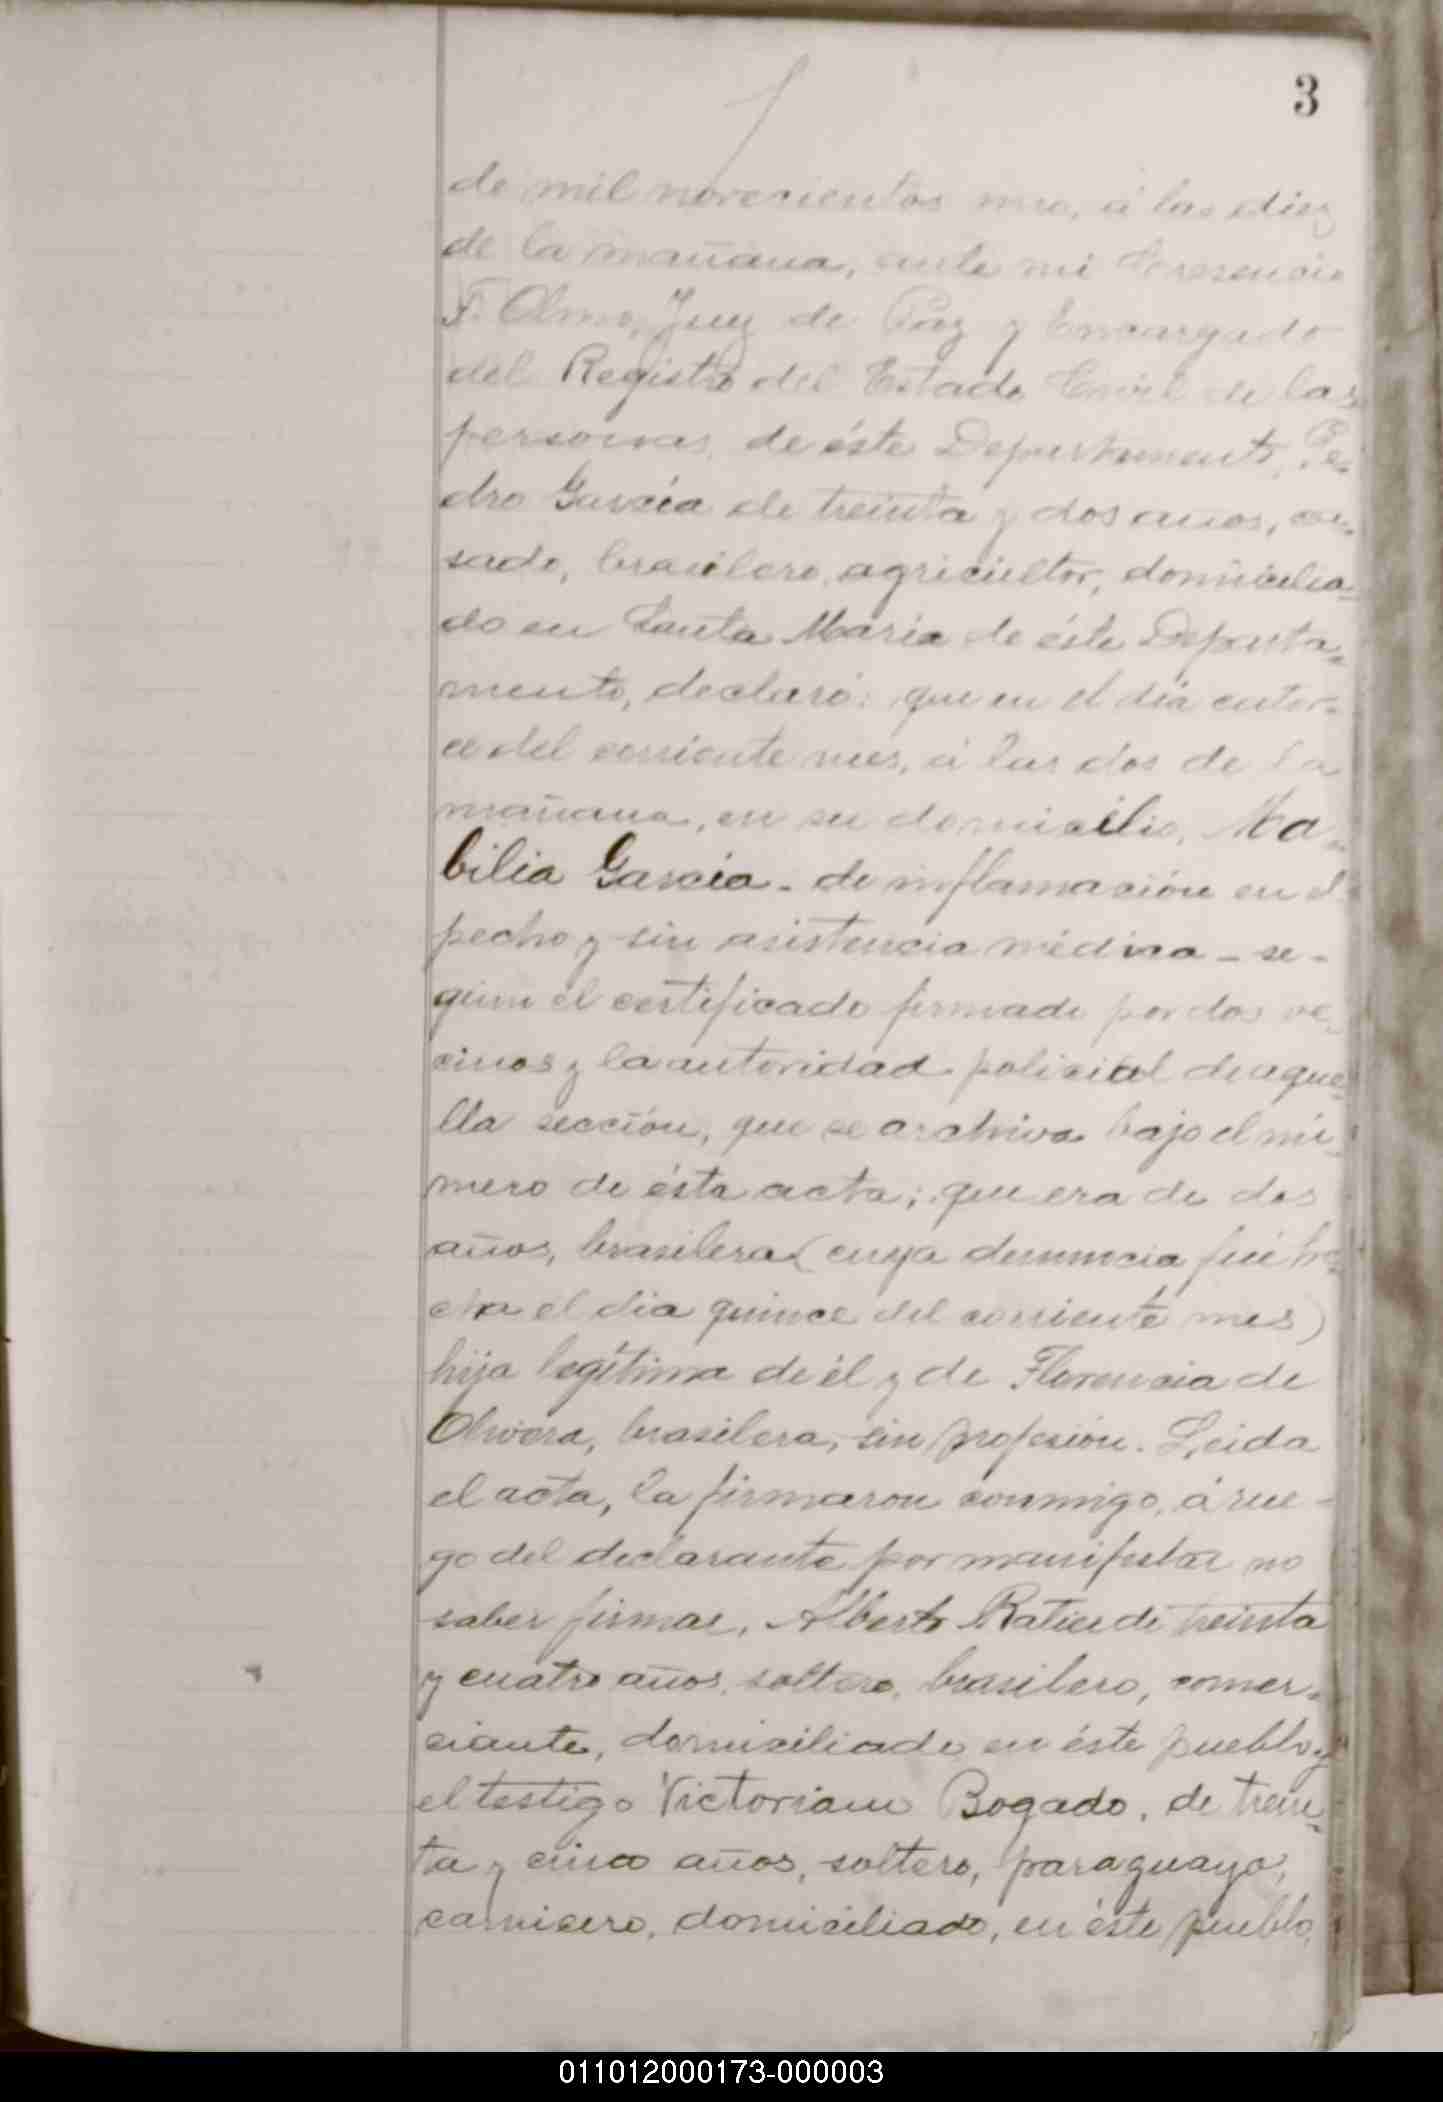 3
de mil novecientos uno, á las diez
de la mañana, ante mi Cresencio
F. Olmo, Juez de Paz y Encargado
del Registro del Estado Civil de las
personas, de éste Departamento, Pe-
dro García de treinta y dos años, ca-
sado, brasilero, agricultor, domicilia-
do en Santa María de éste Departa-
mento, declaró: que en el día cator-
ce del corriente mes, á las dos de la
mañana, en su domicilio, Ma-
bilia García - de inflamación en el
pecho y sin asistencia médica - se-
gún el certificado firmado por dos ve-
cinos y la autoridad policial de aque-
lla sección, que se archiva bajo el nú-
mero de ésta acta; que era de dos
años, brasilera (cuya denuncia fué he-
cha el dia quince del corriente mes)
hija legítima de él y de Florencia de
Olivera, brasilera, sin profesión. Leida
el acta, la firmaron conmigo, á rue-
go del declarante por manifestar no
saber firmar, Alberto Ratier de treinta
y cuatro años, soltero, brasilero, comer-
ciante, domiciliado en éste pueblo y
el testigo Victoriano Bogado, de trein-
ta y cinco años, soltero, paraguayo,
carnicero, domiciliado, en éste pueblo,
011012000173-000003